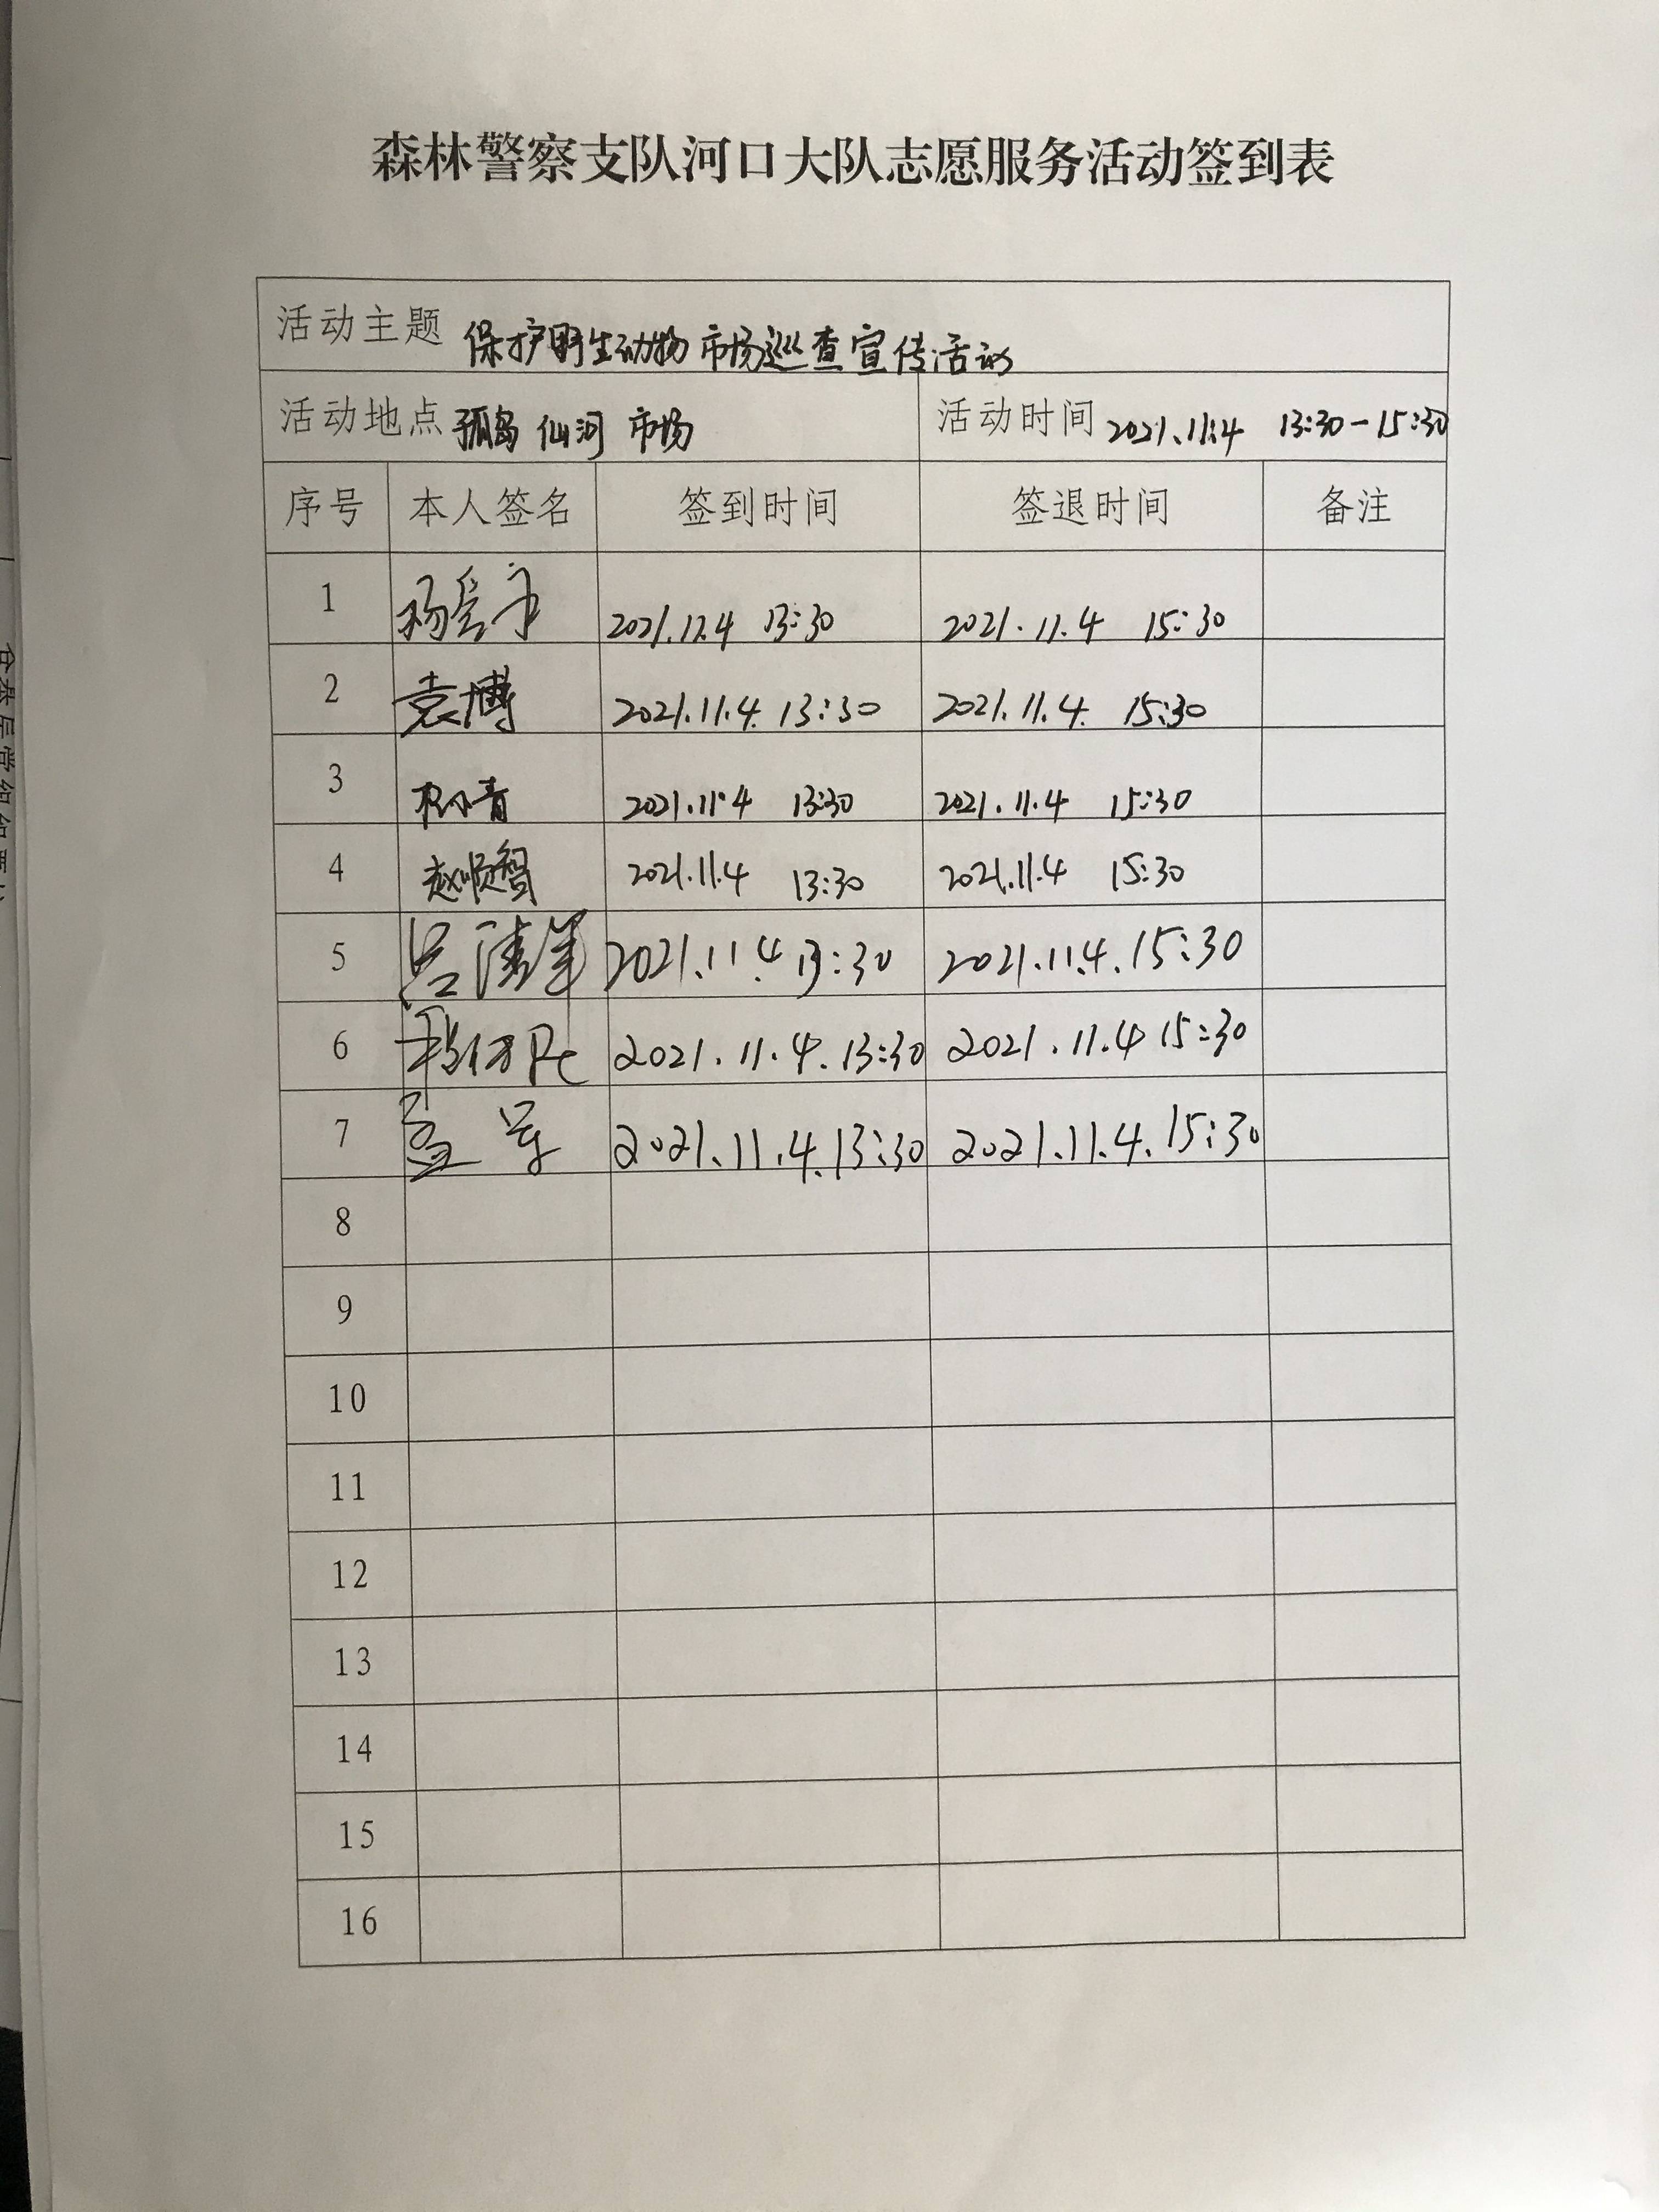 森林警察支队河口大队志愿服务活动签到表
活动主题 保护野生动物市场巡查宣传活动
活动地点 孤岛 仙河 市场 活动时间 2021.11.4 13:30-15:30
序号 本人签名 签到时间 签退时间 备注
1 2021.11.4 13:30 2021.11.4 15:30
2 袁博 2021.11.4. 13:30 2021.11.4. 15:30
3 2021.11.4 13:30 2021.11.4 15:30
4 赵顺智 2021.11.4 13:30 2021.11.4 15:30
5 2021.11.4 13:30 2021.11.4.15:30
6 2021.11.4.13:30 2021.11.4 15:30
7 2021.11.4.13:30 2021.11.4.15:30
8
9
10
11
12
13
14
15
16